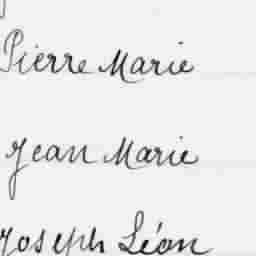 Pierre Marie
Jean Marie
Joseph Léon